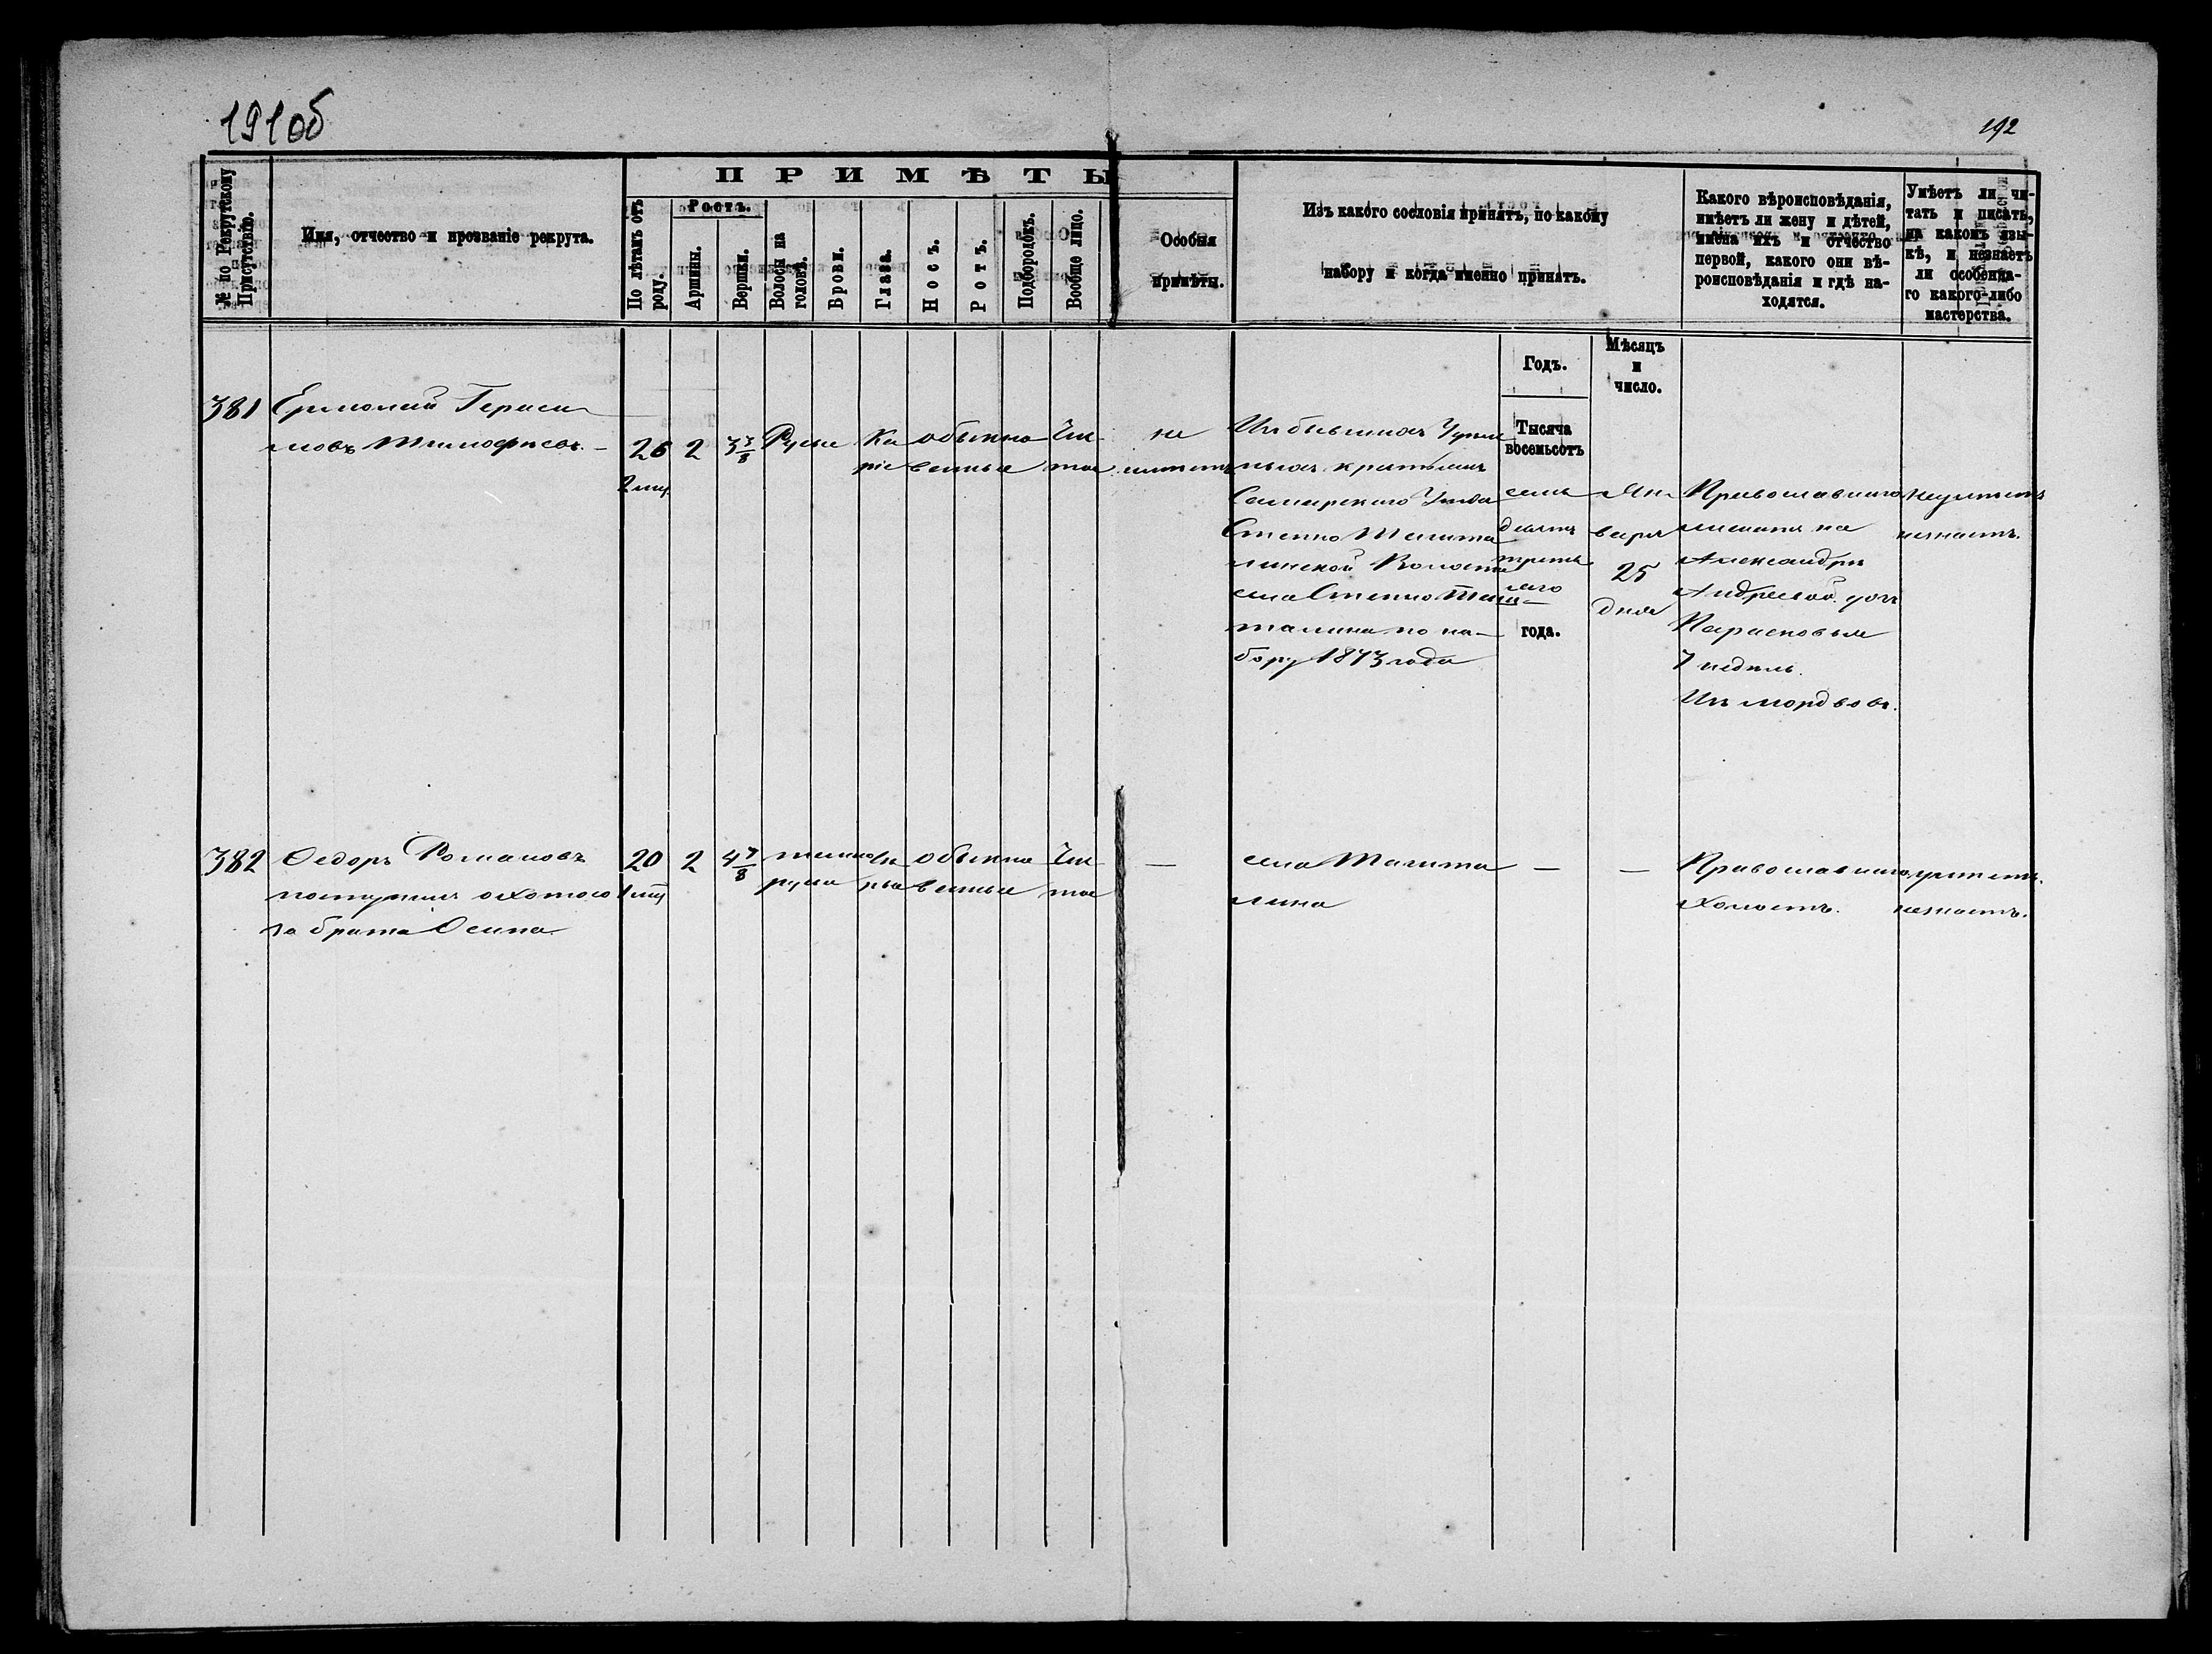 191об
192
П Р И М Ѣ Т Ы
№ по Рекрутскому
Присутствію.
Имя, отчество и прозваніе рекрута.
По лѣтамъ отъ
роду.
Ростъ.
Аршины.
Вершки.
Волосы на
головѣ.
Брови.
Глаза.
Носъ.
Ротъ.
Подбородокъ.
Вообще лицо.
Особыя
примѣты.
Изъ какого сословія принятъ, по какому
набору и когда именно принятъ.
Какого вѣроисповѣданія,
имѣетъ ли жену и дѣтей,
имена ихъ и отчество
первой, какого они вѣ-
роисповѣданія и гдѣ на-
ходятся.
Умѣетъ ли чи-
тать и писать,
на какомъ язы-
кѣ, и незнаетъ
ли особенна-
го какого-либо
мастерства.
Годъ.
Мѣсяцъ
и
число.
381
Ермолай Гераси
мовъ Тимофеевъ. —
26
2 мц.
2
3 7/8
Русые
Ка
ріе
обыкно
венные
Чис
тое
не
имѣетъ
Изъ бывшихъ Удѣль
ныхъ крестьянъ
Самарскаго Уѣзда
Степно Шентa
линской Волости
села Степно Шен
талина по на-
бору 1873 года
Тысяча
восемьсотъ
семь
десятъ
треть
яго
года.
Ян
варя
25
дня
Православнаго
женатъ на
Александрѣ
Андреевой дочь
Парасковья
7 недѣль.
Изъ мордвовъ.
неумѣетъ
незнаетъ.
382
Ѳедоръ Романовъ
поступилъ охотою
за брата Осипа
20
1 мц
2
4 7/8
темно
русые
Ка
ріе
обыкно
венные
Чис
тое
—
села Шента
лина
—
—
Православнаго
Холостъ.
умѣетъ.
незнаетъ.